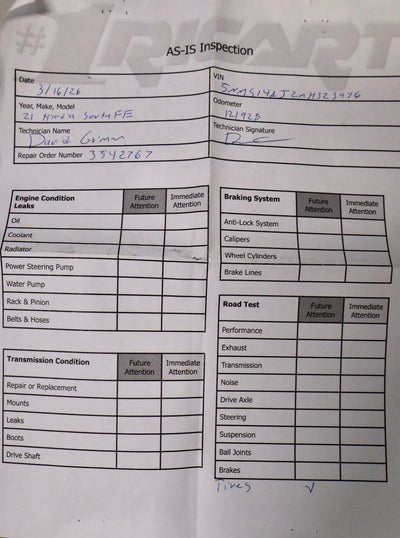 #1 RICART
AS-IS Inspection
Date 3/16/26
VIN
Year, Make, Model 21 SantaFE
Odometer 121928
Technician Name David
Technician Signature
Repair Order Number 3542767
Engine Condition Future Attention Immediate Attention
Leaks
Oil
Coolant
Radiator
Power Steering Pump
Water Pump
Rack & Pinion
Belts & Hoses
Transmission Condition Future Attention Immediate Attention
Repair or Replacement
Mounts
Leaks
Boots
Drive Shaft
Braking System Future Attention Immediate Attention
Anti-Lock System
Calipers
Wheel Cylinders
Brake Lines
Road Test Future Attention Immediate Attention
Performance
Exhaust
Transmission
Noise
Drive Axle
Steering
Suspension
Ball Joints
Brakes
Tires √